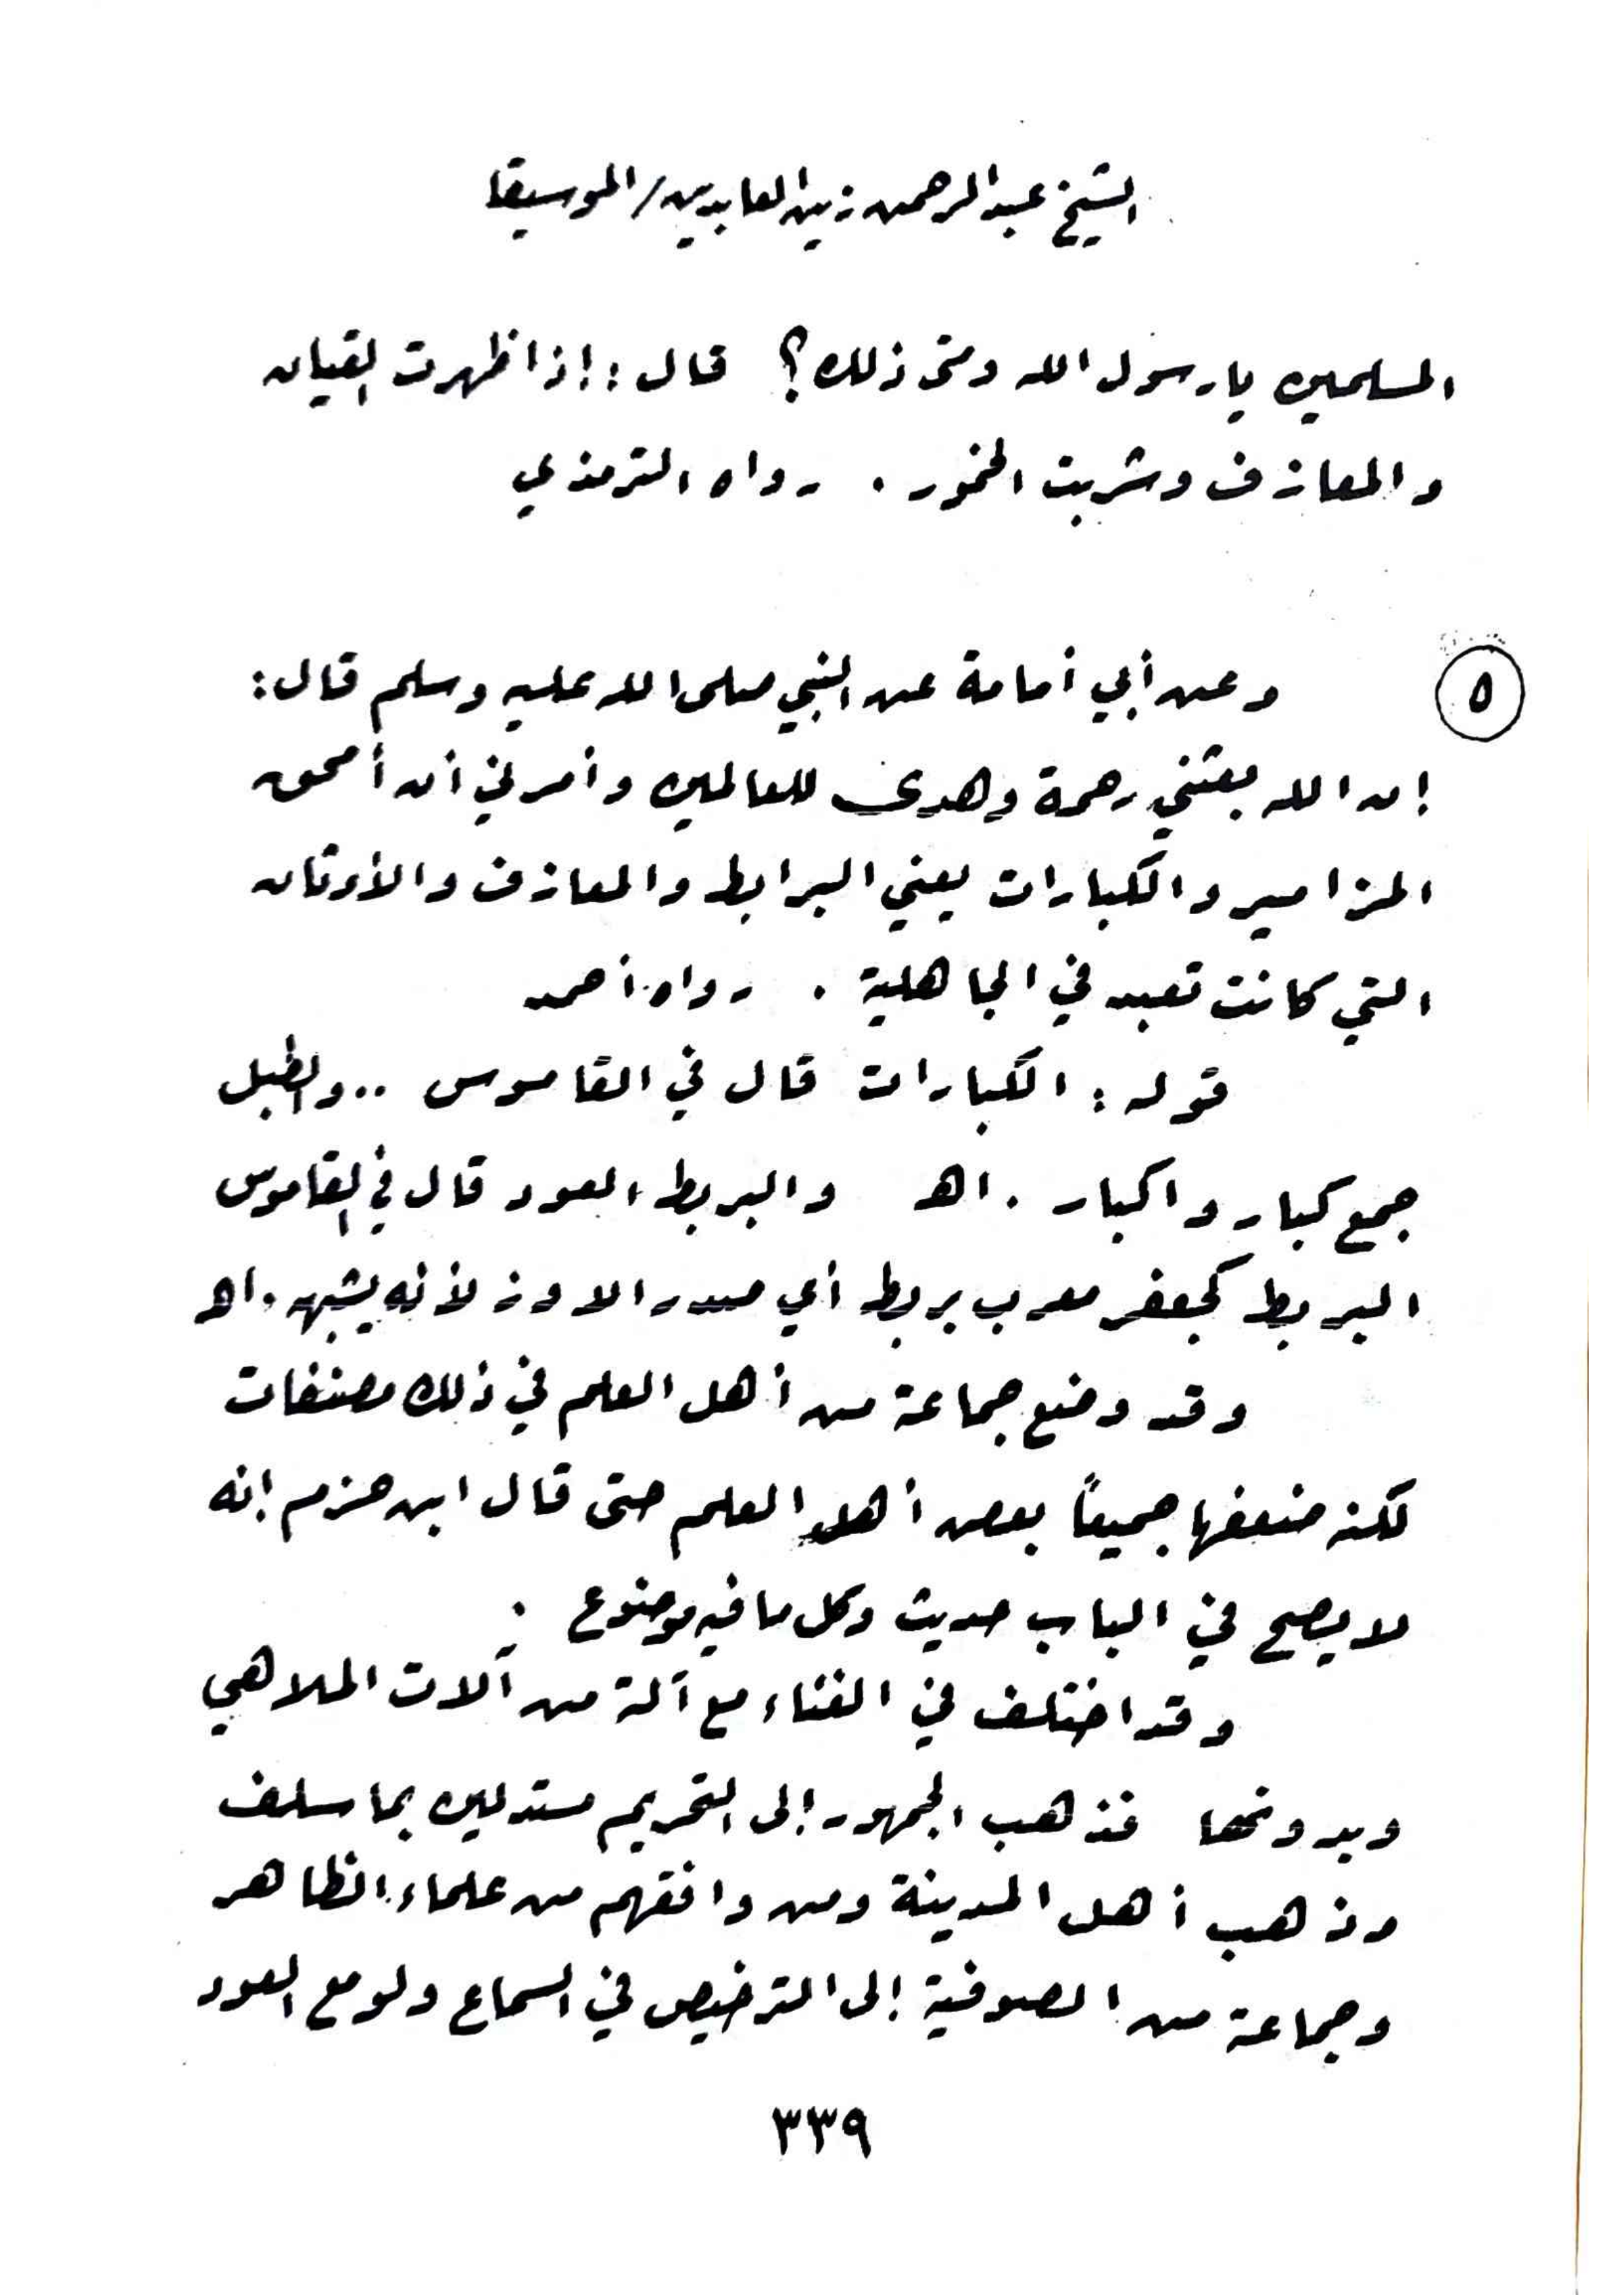 الشيخ عبدالرحمن زين العابدين / الموسيقا
المسلمين يا رسول الله ومتى ذلك؟ قال: إذا ظهرت القيان
والمعازف وشربت الخمور. رواه الترمذي
٥
وعن أبي أمامة عن النبي صلى الله عليه وسلم قال:
إن الله بعثني رحمة وهدى للعالمين وأمرني أن أمحق
المزامير والكبارات يعني البرابط والمعازف والأوثان
التي كانت تعبد في الجاهلية. رواه أحمد
قوله: الكبارات قال في القاموس .. والطبل
جمع كبار واكبار. اهـ والبربط العود قال في القاموس
البربط كجعفر معرب بربط أي صدر الاوز لأنه يشبهه. اهـ
وقد وضع جماعة من أهل العلم في ذلك مصنفات
لكنه ضعفها جميعاً بعض أهل العلم حتى قال ابن حزم إنه
لا يصح في الباب حديث وكل ما فيه موضوع.
وقد اختلف في الغناء مع آلة من آلات الملاهي
وبدونها فذهب الجمهور إلى التحريم مستدلين بما سلف
وذهب أهل المدينة ومن وافقهم من علماء الظاهر
وجماعة من الصوفية إلى الترخيص في السماع ولو مع العود
٣٣٩